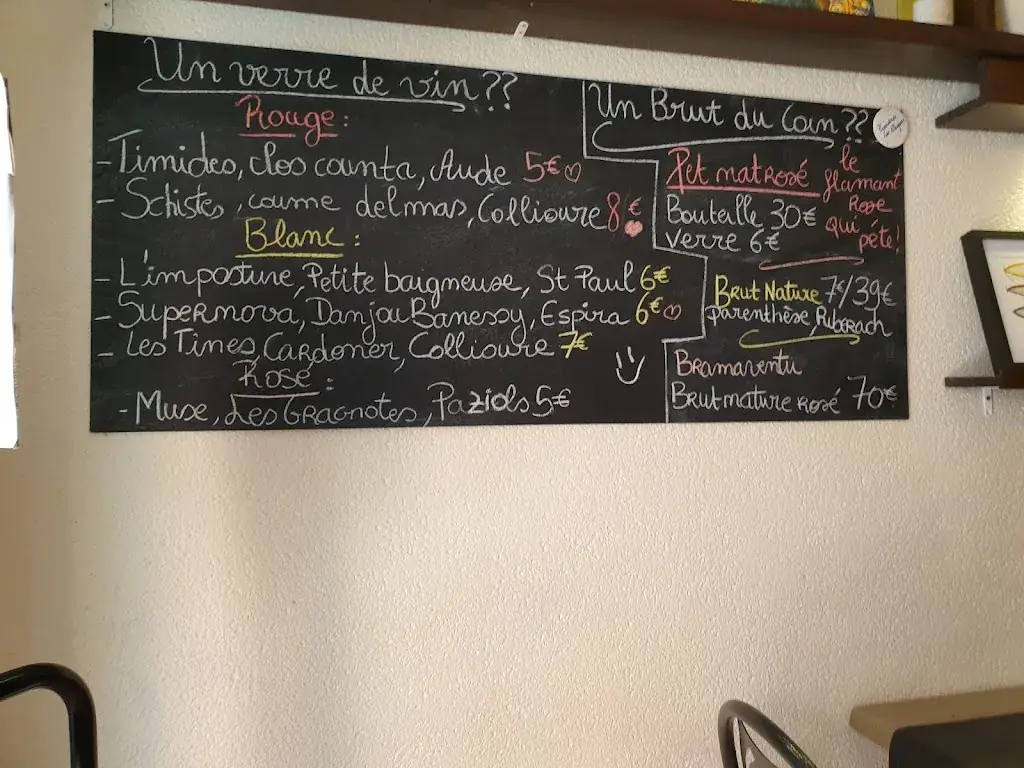 Un verre de vin??
Rouge:
- Timides, clos counta, Aude 5€
- Schistes, coume delmas, Collioure 8€
Blanc:
- L'imposture, Petite baigneuse, St Paul 6€
- Supernova, Danjou Banessy, Espira 6€
- Les Tines, Cardoner, Collioure 7€
Rosé:
- Muse, Les Gragnotes, Paziols 5€
Un Brut du Coin??
Pet mat Rosé
le flamant
Rose
qui
pète!
Bouteille 30€
Verre 6€
Brut Nature 7€/39€
parenthèse, Riberach
Bramaventu
Brut nature rosé 70€